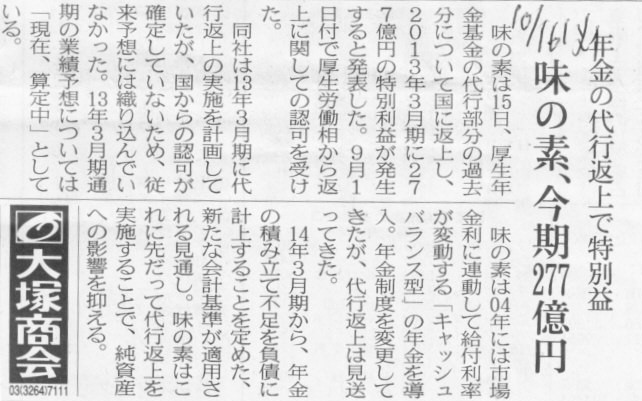 10/16 火
年金の代行返上で特別益
味の素、今期277億円
味の素は15日、厚生年
金基金の代行部分の過去
分について国に返上し、
2013年3月期に27
7億円の特別利益が発生
すると発表した。9月1
日付で厚生労働相から返
上に関しての認可を受け
た。
同社は13年3月期に代
行返上の実施を計画して
いたが、国からの認可が
確定していないため、従
来予想には織り込んでい
なかった。13年3月期通
期の業績予想については
「現在、算定中」として
いる。
味の素は04年には市場
金利に連動して給付利率
が変動する「キャッシュ
バランス型」の年金を導
入。年金制度を変更して
きたが、代行返上は見送
ってきた。
14年3月期から、年金
の積み立て不足を負債に
計上することを定めた、
新たな会計基準が適用さ
れる見通し。味の素はこ
れに先だって代行返上を
実施することで、純資産
への影響を抑える。
大塚商会
03(3264)7111